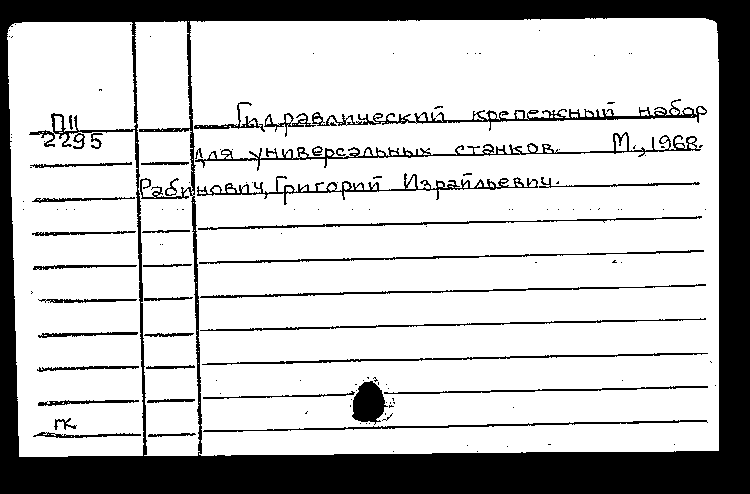 ПII
2295
Гидравлический крепежный набор
для универсальных станков. М., 1968.
Рабинович, Григорий Израйльевич.
гк